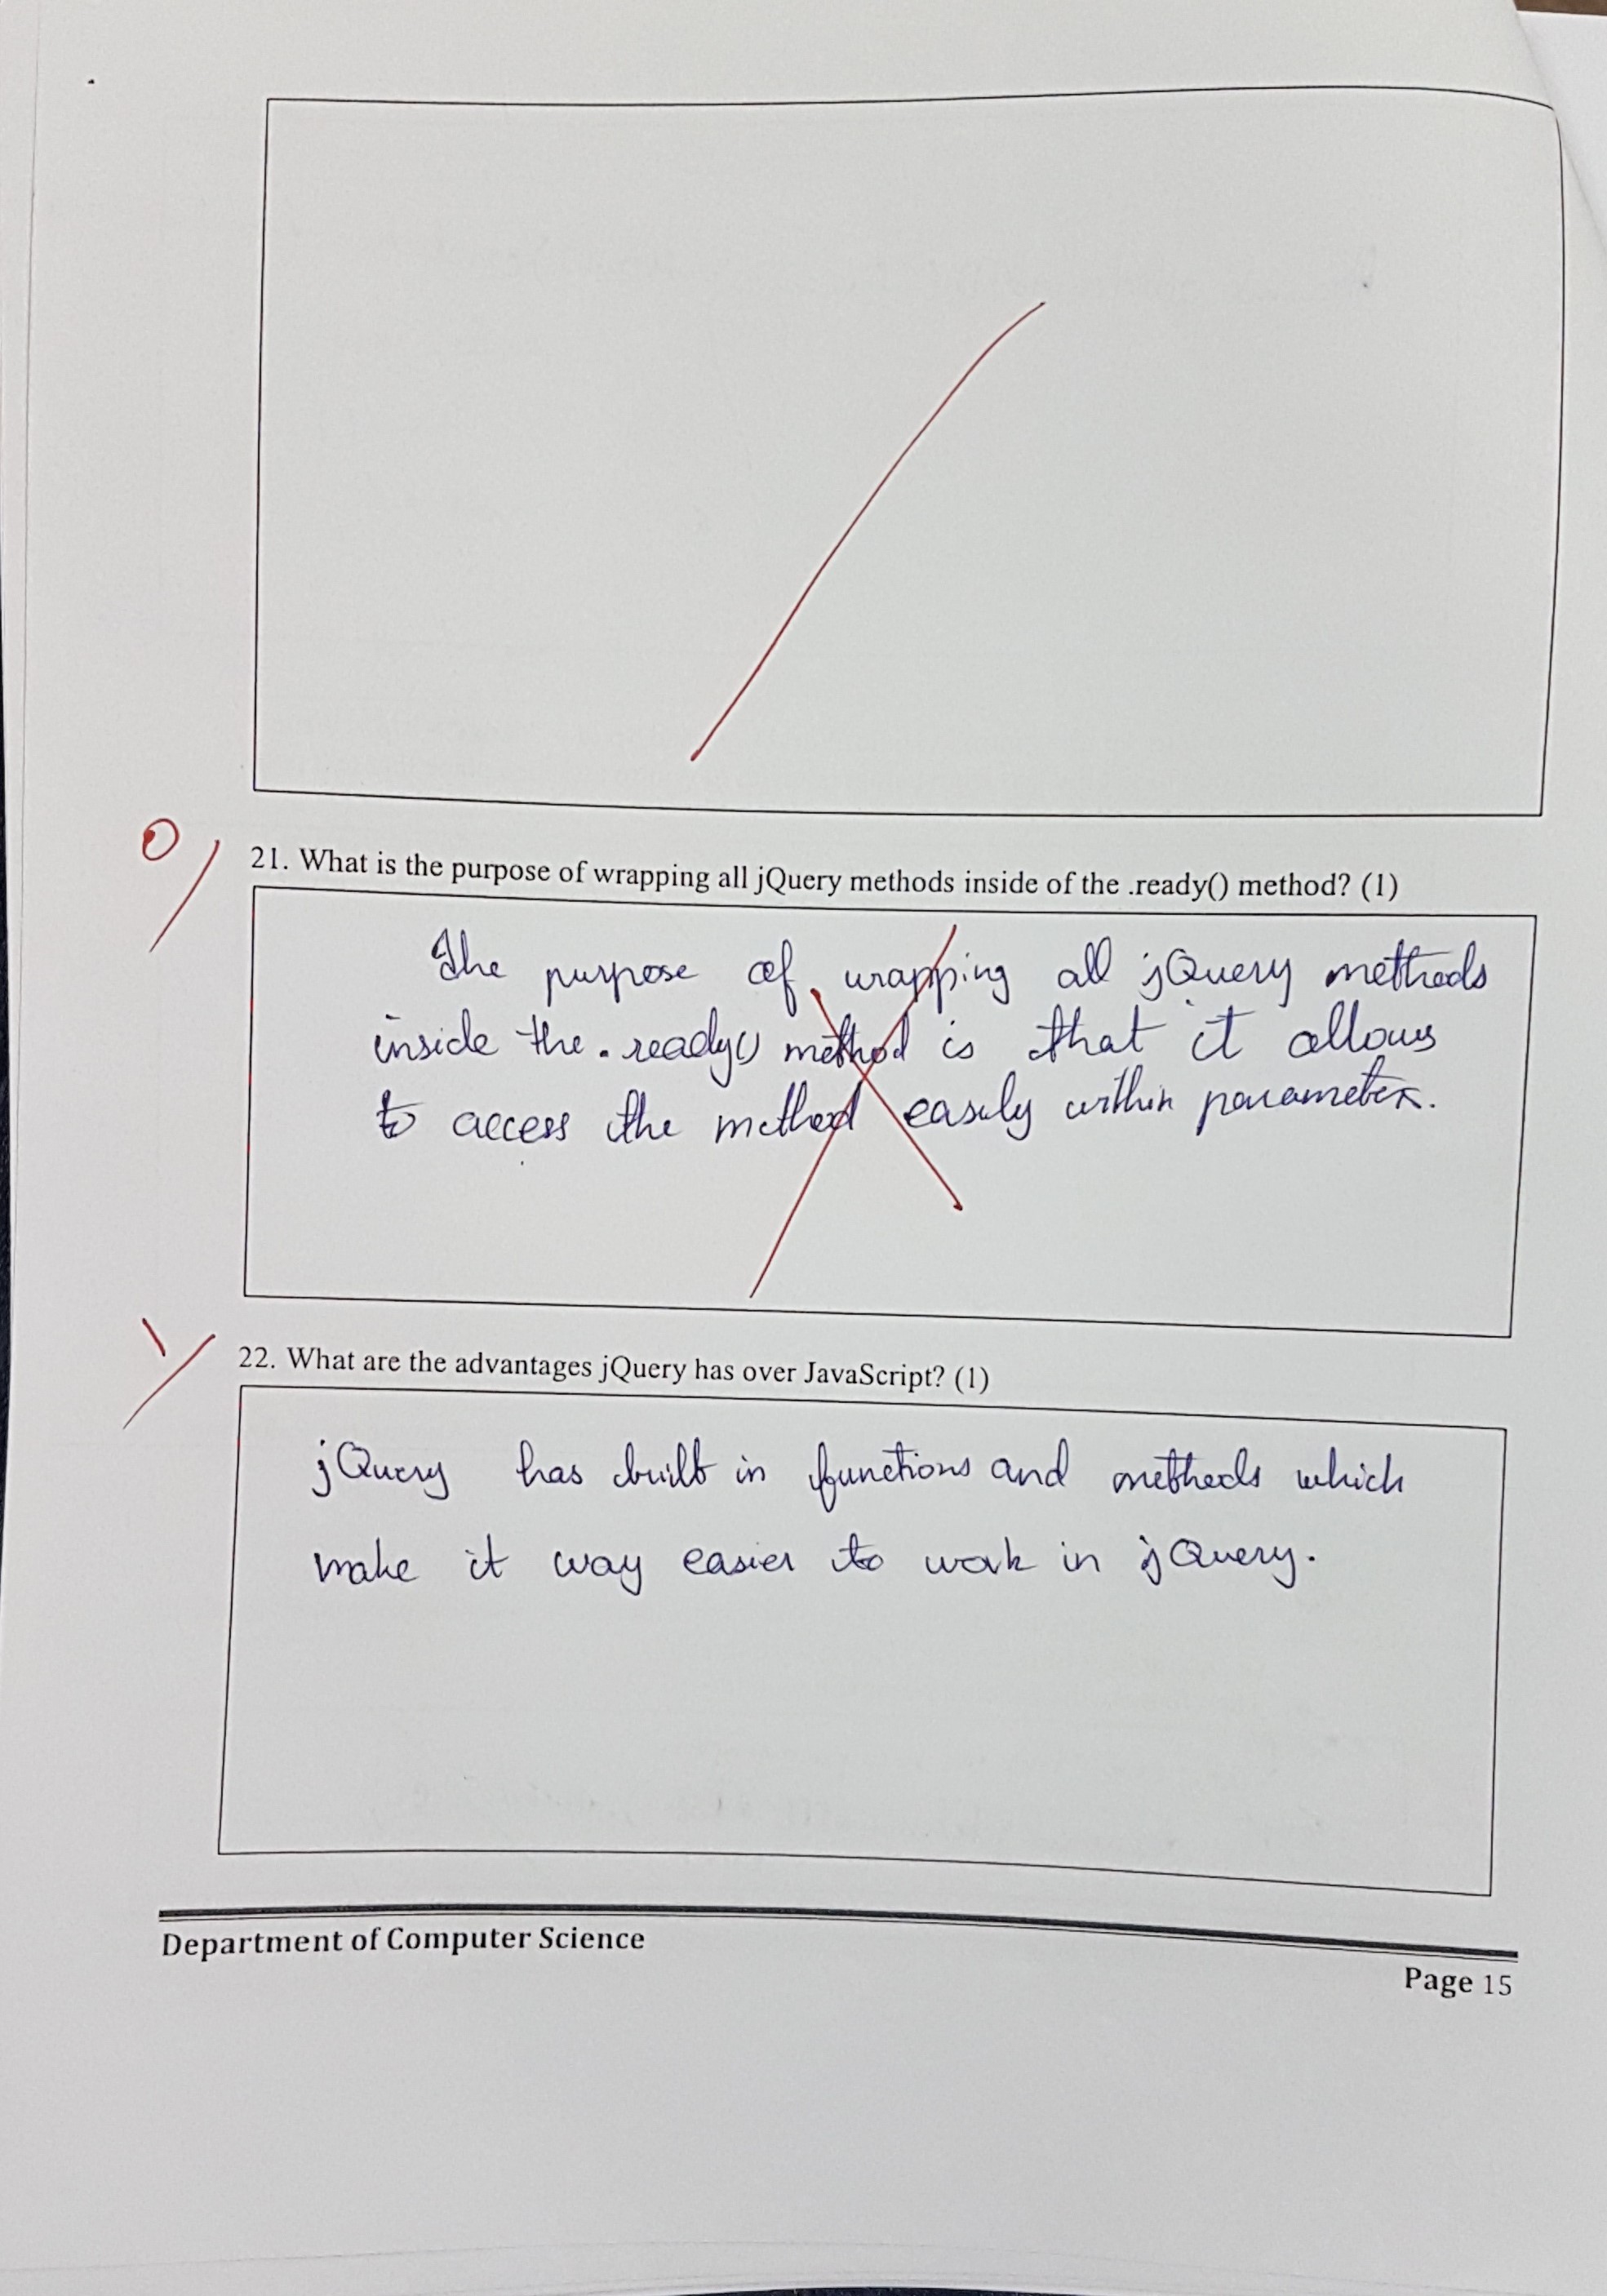 0
21. What is the purpose of wrapping all jQuery methods inside of the .ready() method? (1)
The purpose of wrapping all jQuery methods
inside the .ready() method is that it allows
to access the method easily within parameter.
1
22. What are the advantages jQuery has over JavaScript? (1)
jQuery has built in functions and methods which
make it way easier to work in jQuery.
Department of Computer Science
Page 15